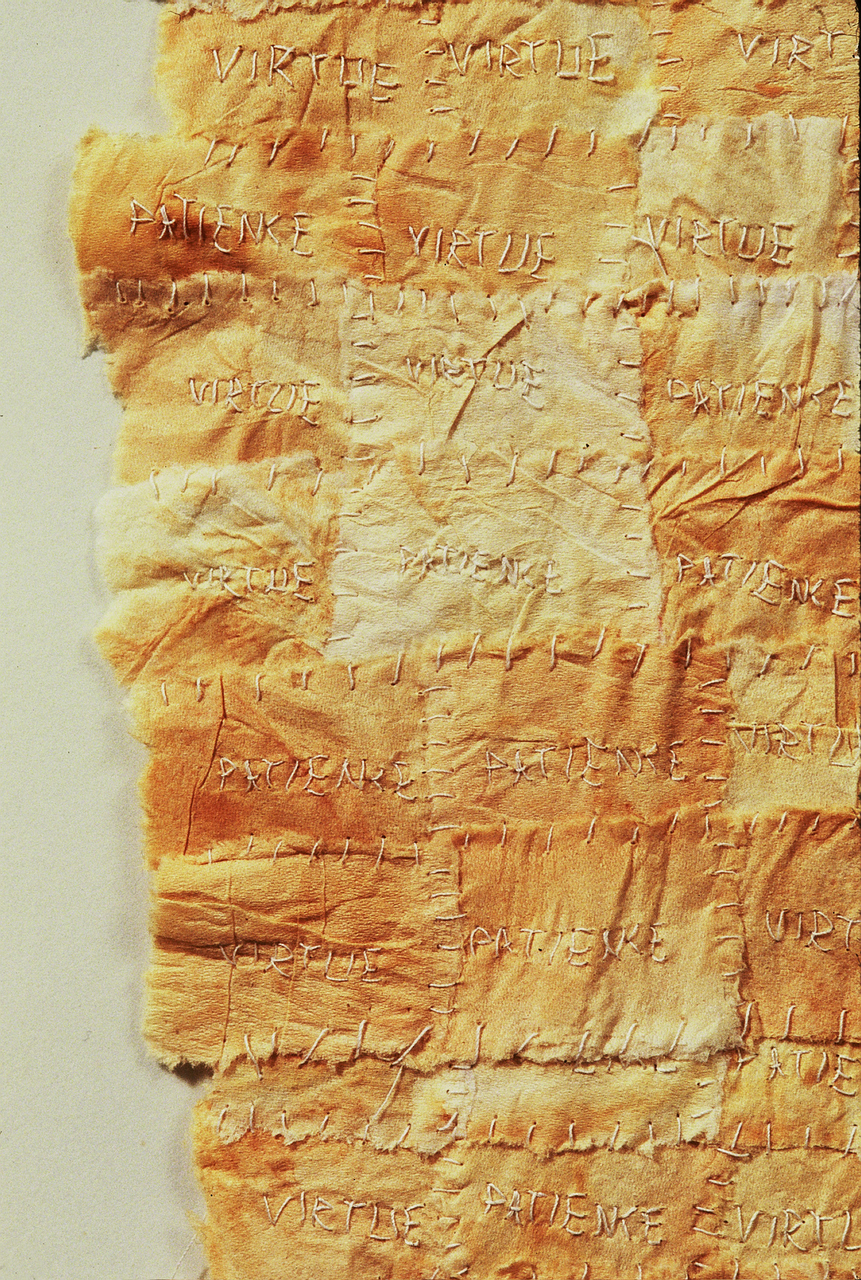 VIRTUE VIRTUE VIRT
PATIENCE VIRTUE VIRTUE
VIRTUE VIRTUE PATIENCE
VIRTUE PATIENCE PATIENCE
PATIENCE PATIENCE VIRTU
VIRTUE PATIENCE VIRT
PATIE
VIRTUE PATIENCE VIRTU